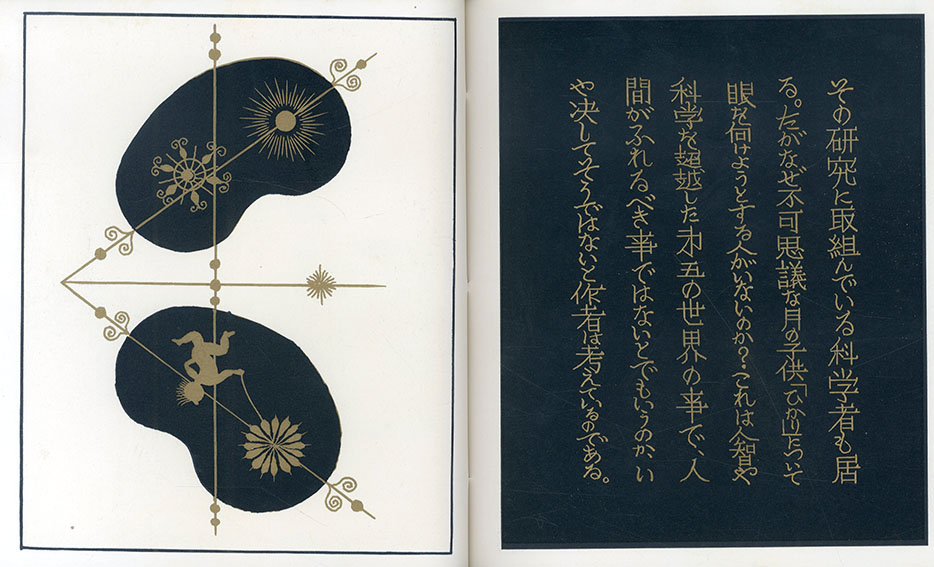 その研究に取組んでいる科学者も居
る。だがなぜ不可思議な月の子供「ひかり」について
眼を向けようとする人がいないのか?これは人智や
科学を超越した才五の世界の事で、人
間がふれるべき事ではないとでもいうのか、い
や決してそうではないと作者は考えているのである。